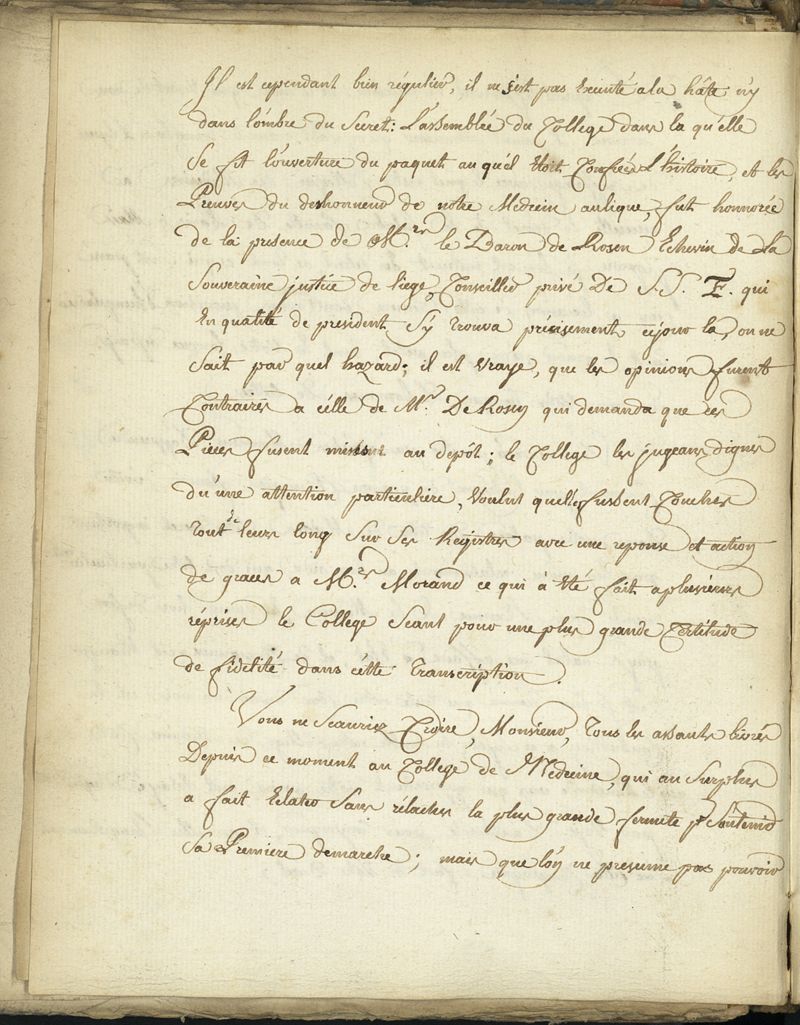 Il est cependant bien régulier, il ne s'est pas executé a la hâte n'y
dans l'ombre du secret: L'assemblée du College dans la qu'elle
se fit l'ouverture du paquet au quel étoit Confiées L'histoire, et les
Preuves du deshonneur de notre Medecin aulique, fut honnorée
de la presence de M.r le Baron de Rosen Echevin de La
Souveraine justice de liege Conseiller privé De S.S. E. qui
En qualité de president s'y trouva précisement ce jour la, on ne
sait par quel hazard; il est vraye, que les opinions furent
Contraires a celle de M.r De Rosen qui demanda que ces
Pieces fusent mises au depôt; le College les jugeans dignes
du'une attention particuliere, voulut quelles fussent Couchés
tout de leurs long sur ses Registres avec une reponse et action
de graces a M.r Morand ce qui à été fait a plusieurs
réprises le College séant pour une plus grande Certitude
de fidelité dans cétte transcription.
Vous ne scauriez Croire, Monsieur, tous les assauts livrés
Depuis ce moment au College de Medecine, qui au surplus
a fait éclater sans rélaches la plus grande fermete pr soutenir
sa Premiere demarche; mais que l'on ne presume pas pouvoir